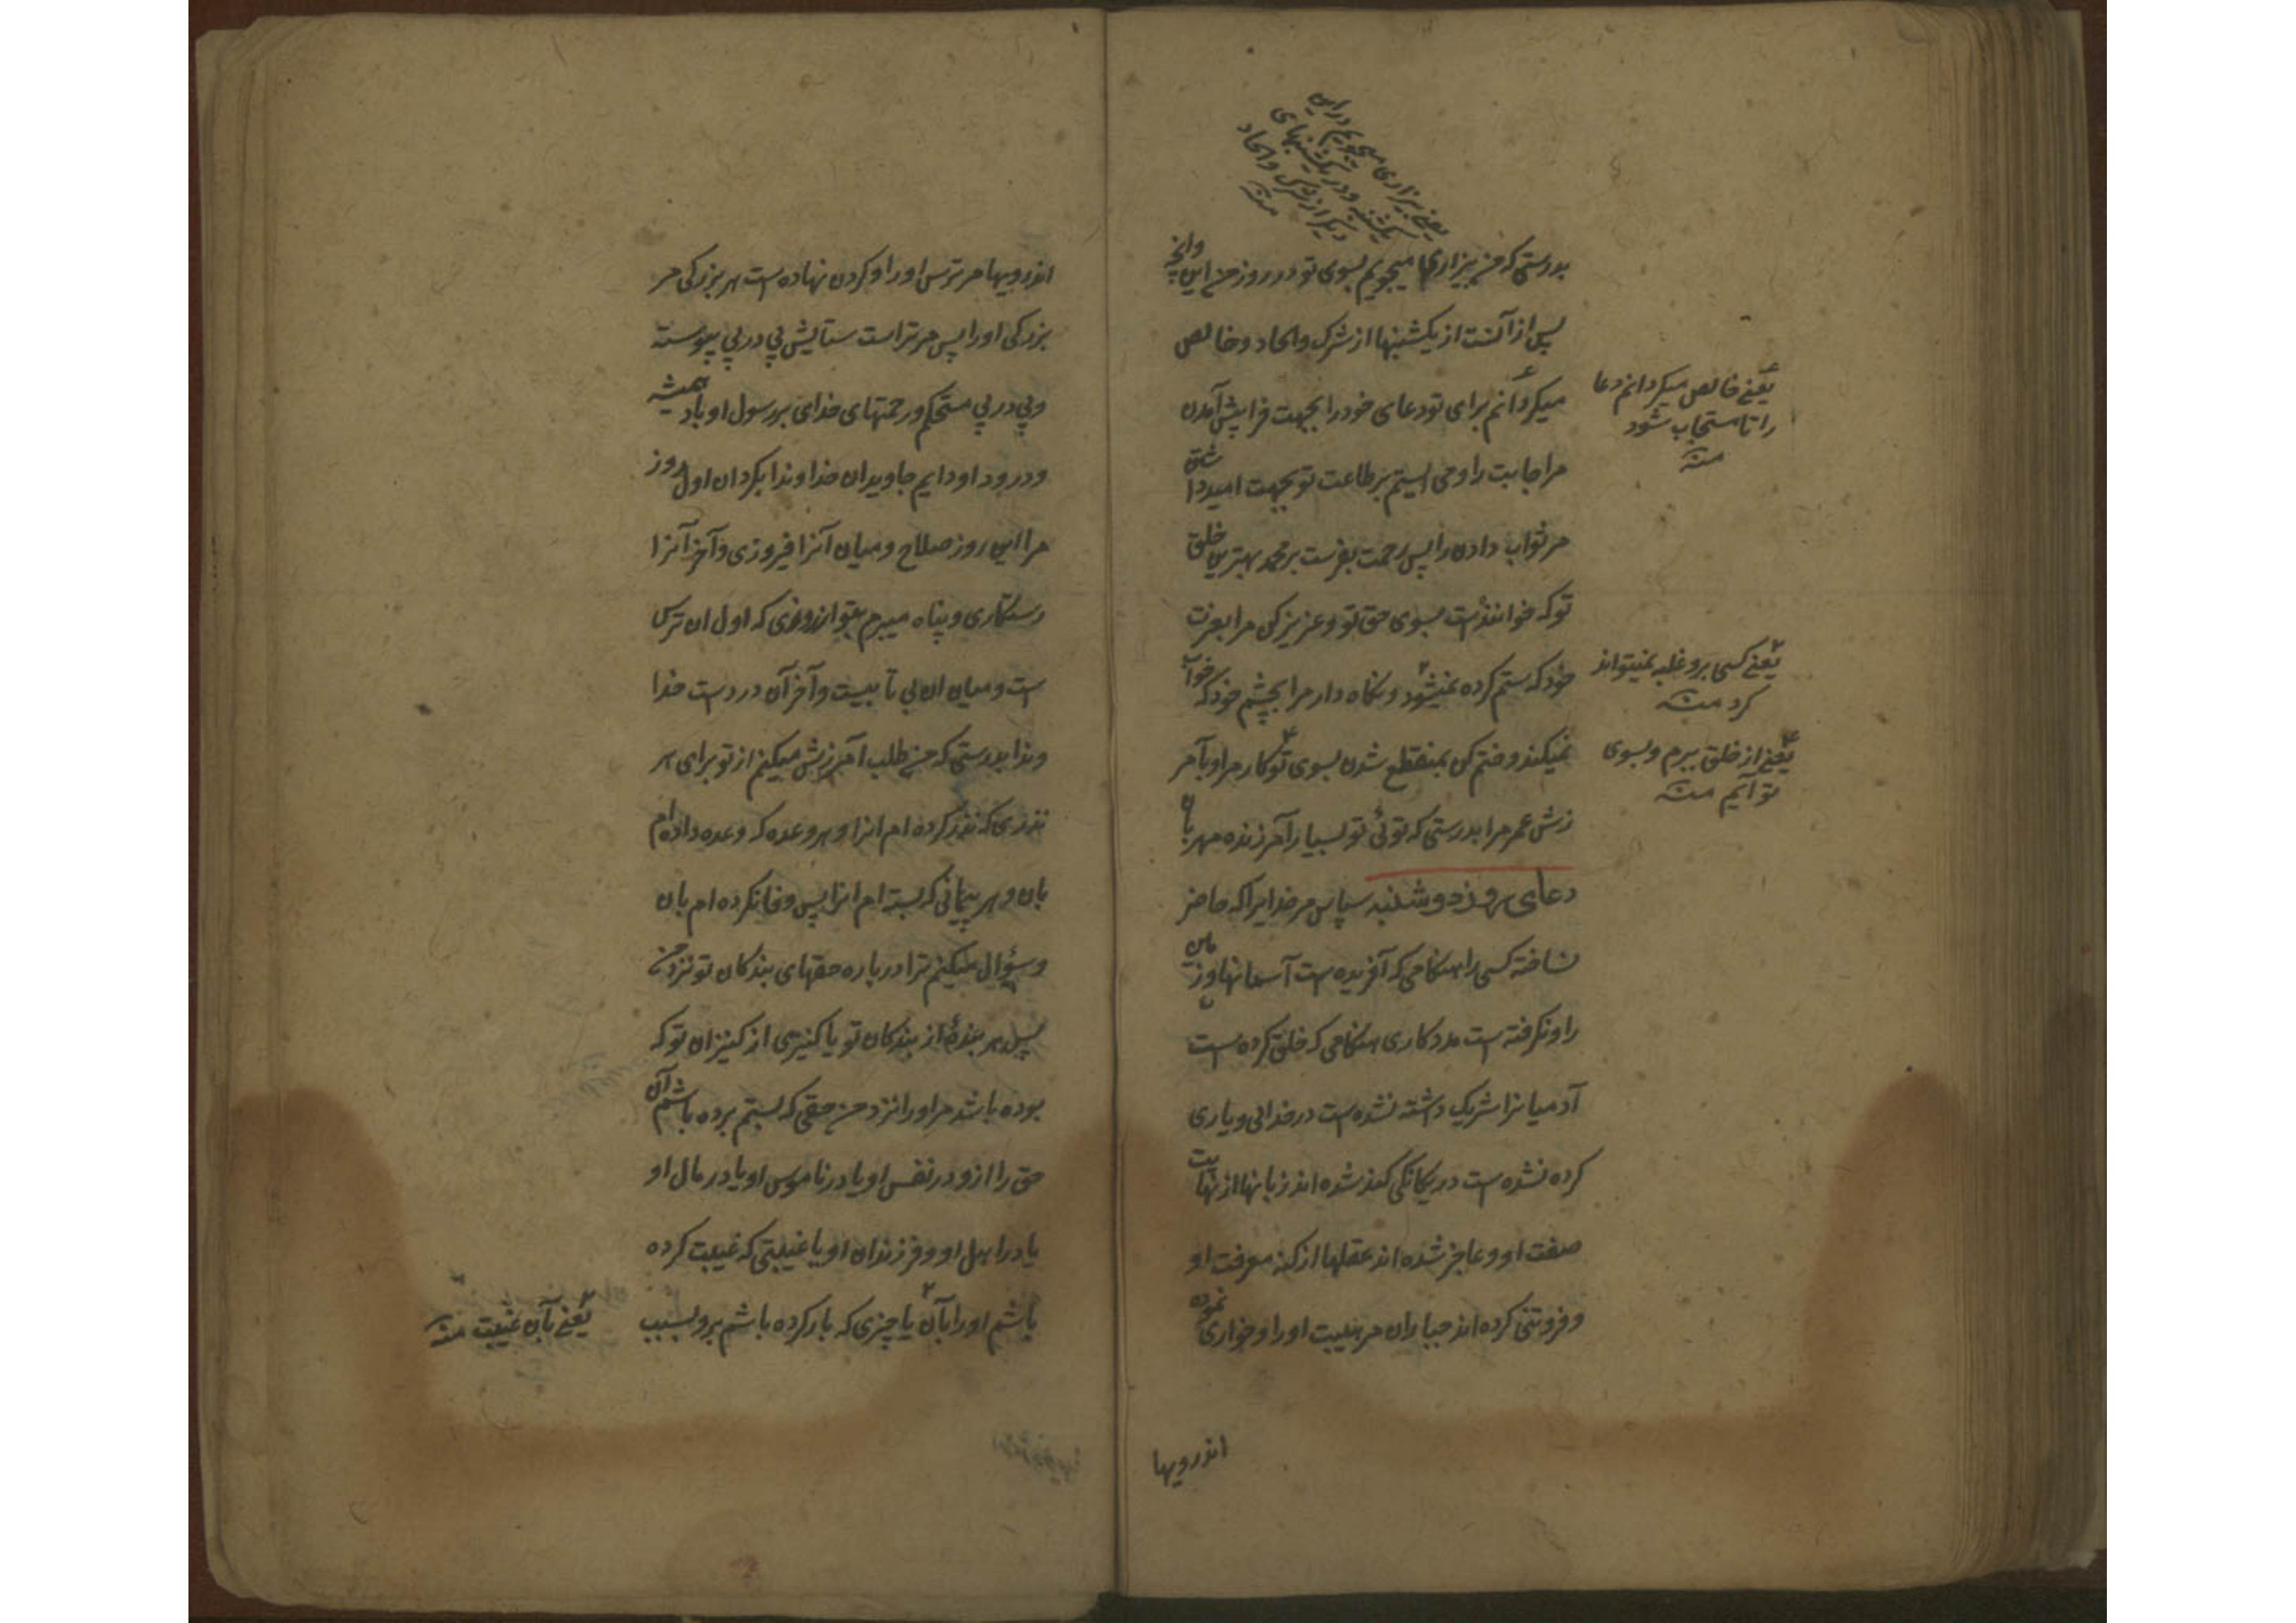 یعنی بیزاری میجویم در این
یکشنبه و در یکشنبهای
دیگر از شرک و الحاد
منه
بدرستی که من بیزاری میجویم بسوی تو در روز من این وانچه
پس از آنست از یکشنبها از شرک و الحاد و خالص
میکردانم برای تو دعای خود را بجهت فراپیش آمدن
مر اجابت را و می ایستم بر طاعت تو بجهت امید داشتن
مر ثواب دادن را پس رحمت بفرست بر محمد بهترین خلق
تو که خواننده است بسوی حق تو و عزیز کن مرا بعزت
خود که ستم کرده نمیشود و نکاه دار مرا بچشم خود که خواب
نمیکند و ختم کن بمنقطع شدن بسوی تو کار مرا و بآمر
زش عمر مرا بدرستی که توئی تو بسیار آمرزنده مهربان
دعای روز دوشنبه سپاس مر خدایرا که حاضر
نساخته کسی را هنکامی که آفریده است آسمانها و زمین
را و نکرفته است مددکاری هنکامی که خلق کرده است
آدمیانرا شریک داشته نشده است در خدائی و یاری
کرده نشده است در یکانکی کند شده اند زبانها از نهایت
صفت او و عاجز شده اند عقلها از کنه معرفت او
و فروتنی کرده اند جباران مر هیبت او را و خواری نموده
اندرویها
یعنی خالص میکردانم دعا
را تا مستجاب شود
منه
یعنی کسی برو غلبه نمیتواند
کرد منه
یعنی از خلق ببرم و بسوی
تو آیم منه
اندرویها مر ترس او را و کردن نهاده است هر بزرکی مر
بزرکی او را پس مر تراست ستایش پی در پی پیوسته
و پی در پی مستحکم و رحمتهای خدای بر رسول او باد همیشه
و درود او دایم جاویدان خداوندا بکردان اول روز
مرا این روز صلاح و میان آنرا فیروزی و آخر آنرا
رستکاری و پناه میبرم بتو از روزی که اول ان ترس
است و میان ان بی تابیست و آخر آن درد است خدا
وندا بدرستی که من طلب آمرزش میکنم از تو برای هر
نذری که نذر کرده ام انرا و هر وعده که وعده داده ام
بان و هر پیمانی که بسته ام انرا پس وفا نکرده ام بان
و سؤال میکنم ترا در باره حقهای بندکان تو نزد من
پس هر بندهٔ از بندکان تو یا کنیزی از کنیزان تو که
بوده باشد مر او را نزد من حقی که بستم برده باشم آن
حق را ازو در نفس او یا در ناموس او یا در مال او
یا در اهل او و فرزندان او یا غیبتی که غیبت کرده
باشم او را بآن یا چیزی که بار کرده باشم برو بسبب
یعنی بآن غیبت منه